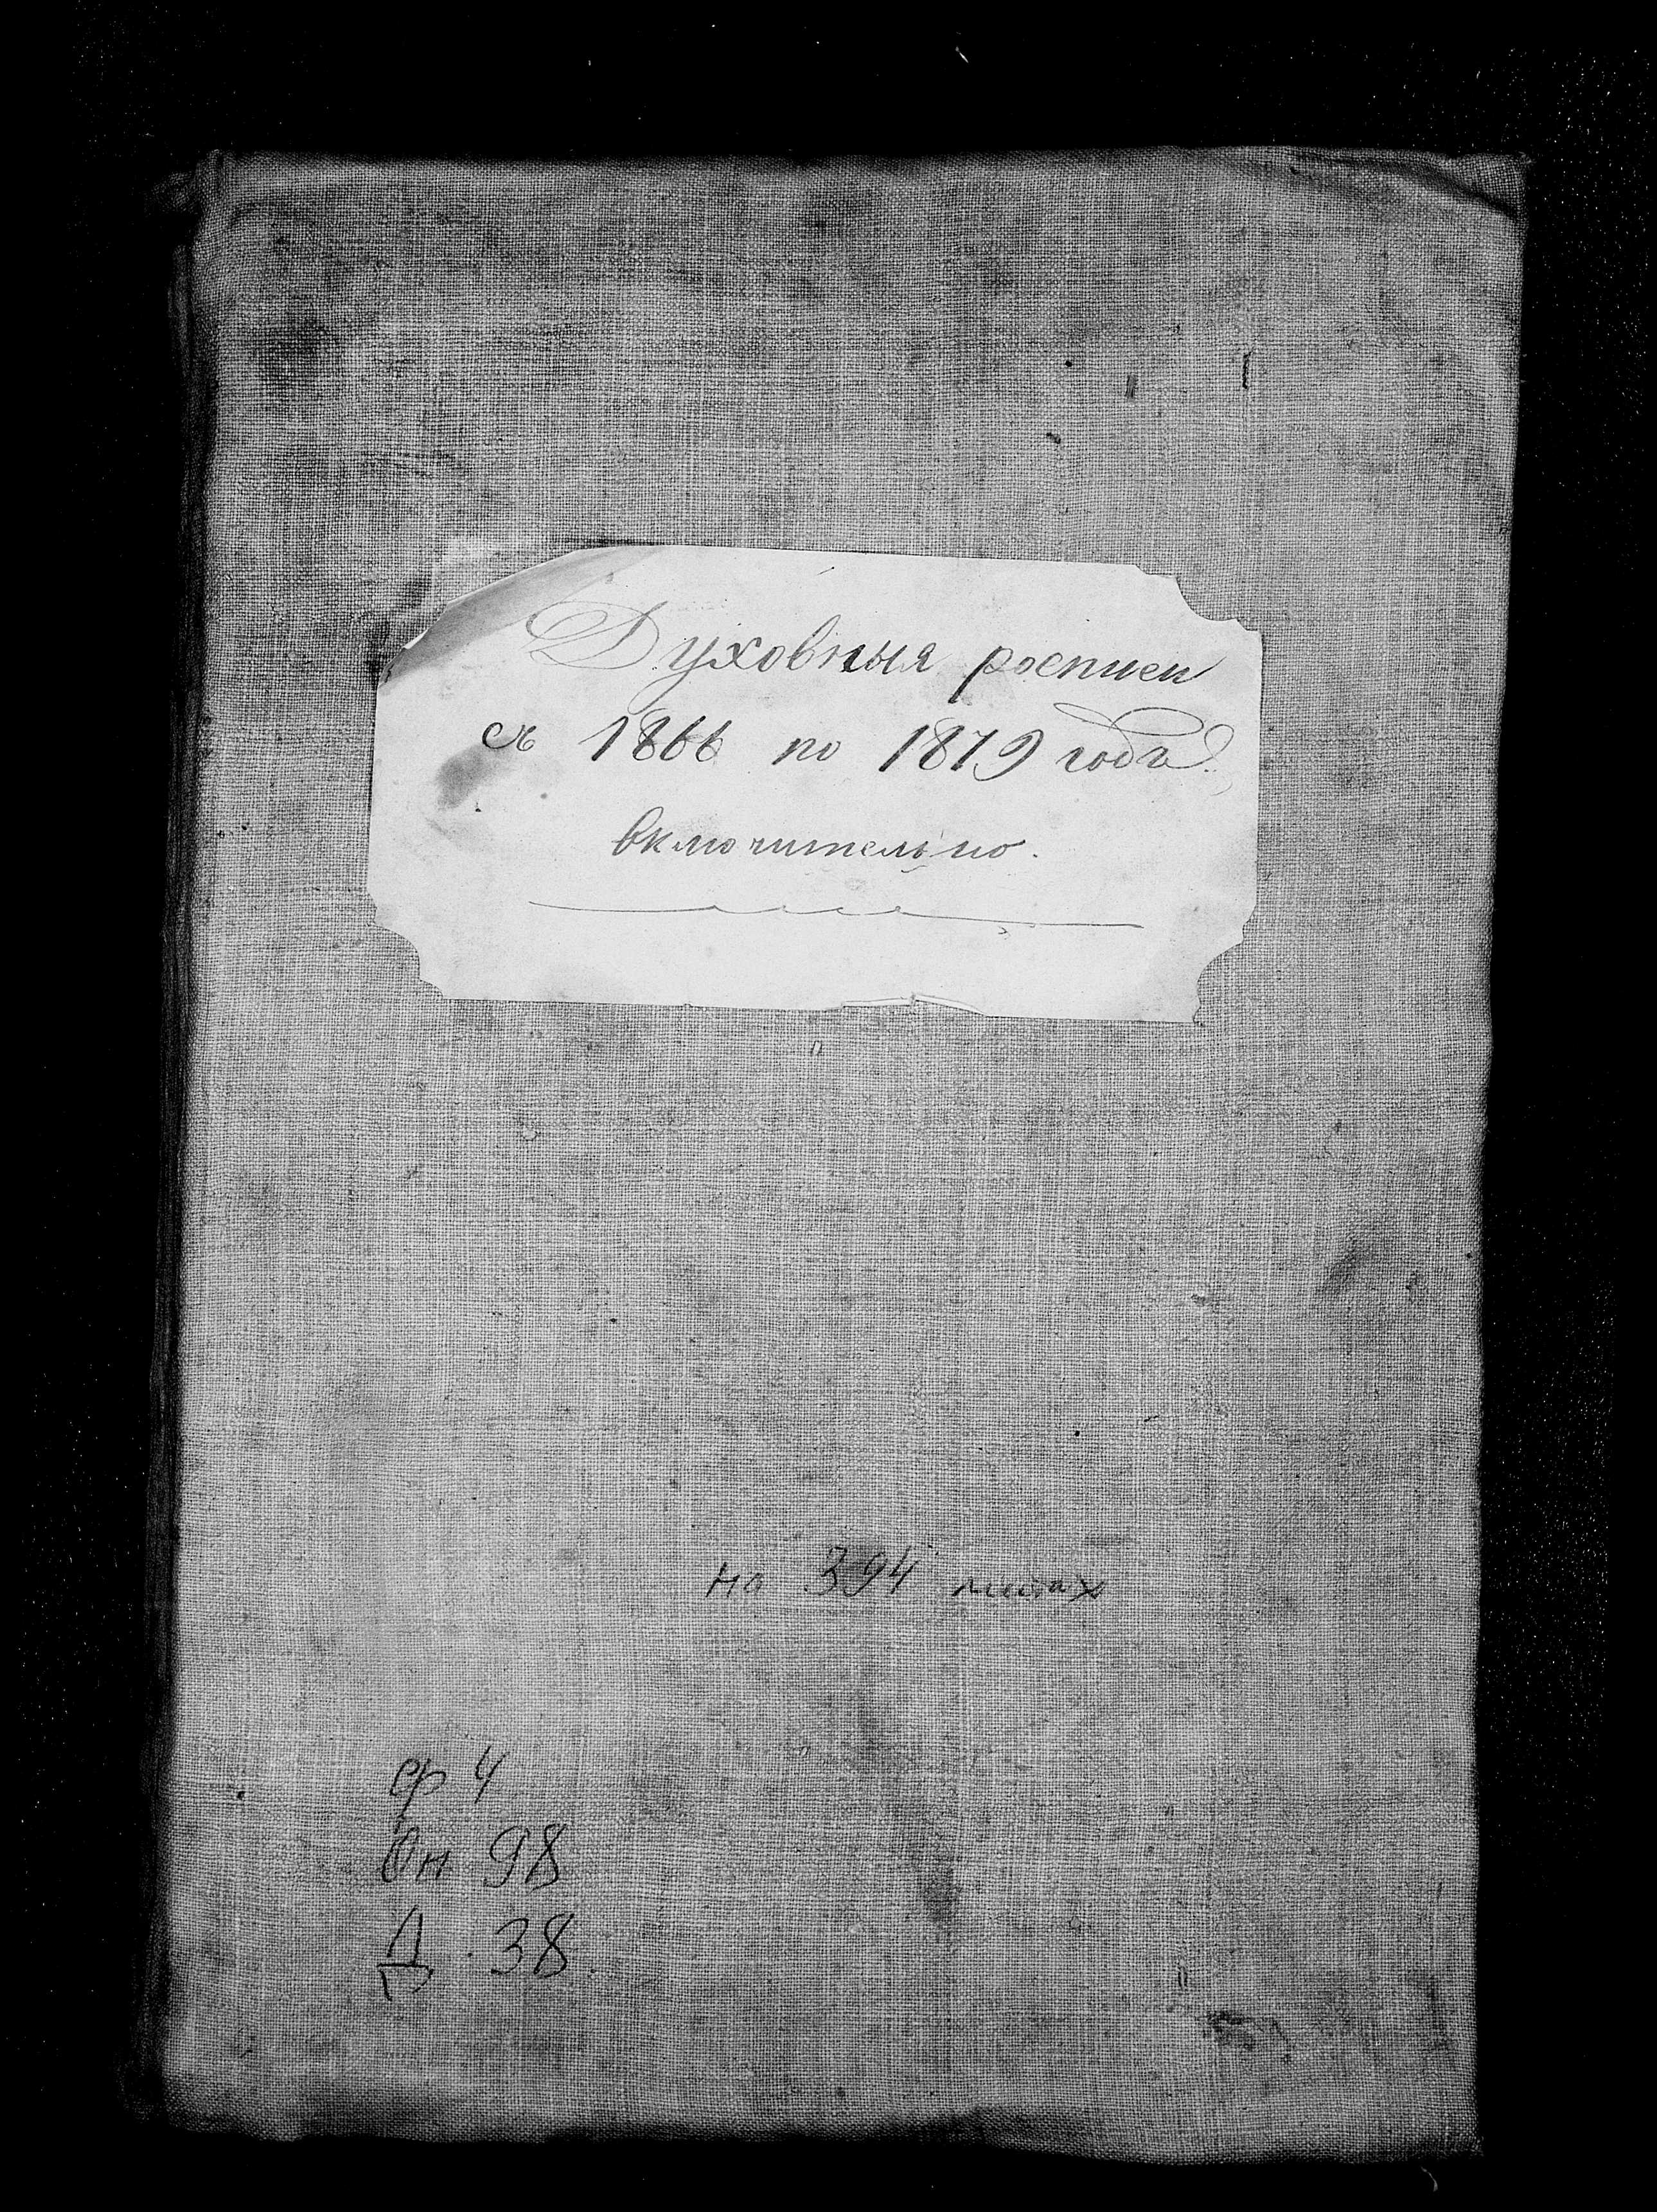 Духовныя росписи
съ 1866 по 1879 года.
включительно.
на 394 листах
ф 4
Оп 98
Д. 38.